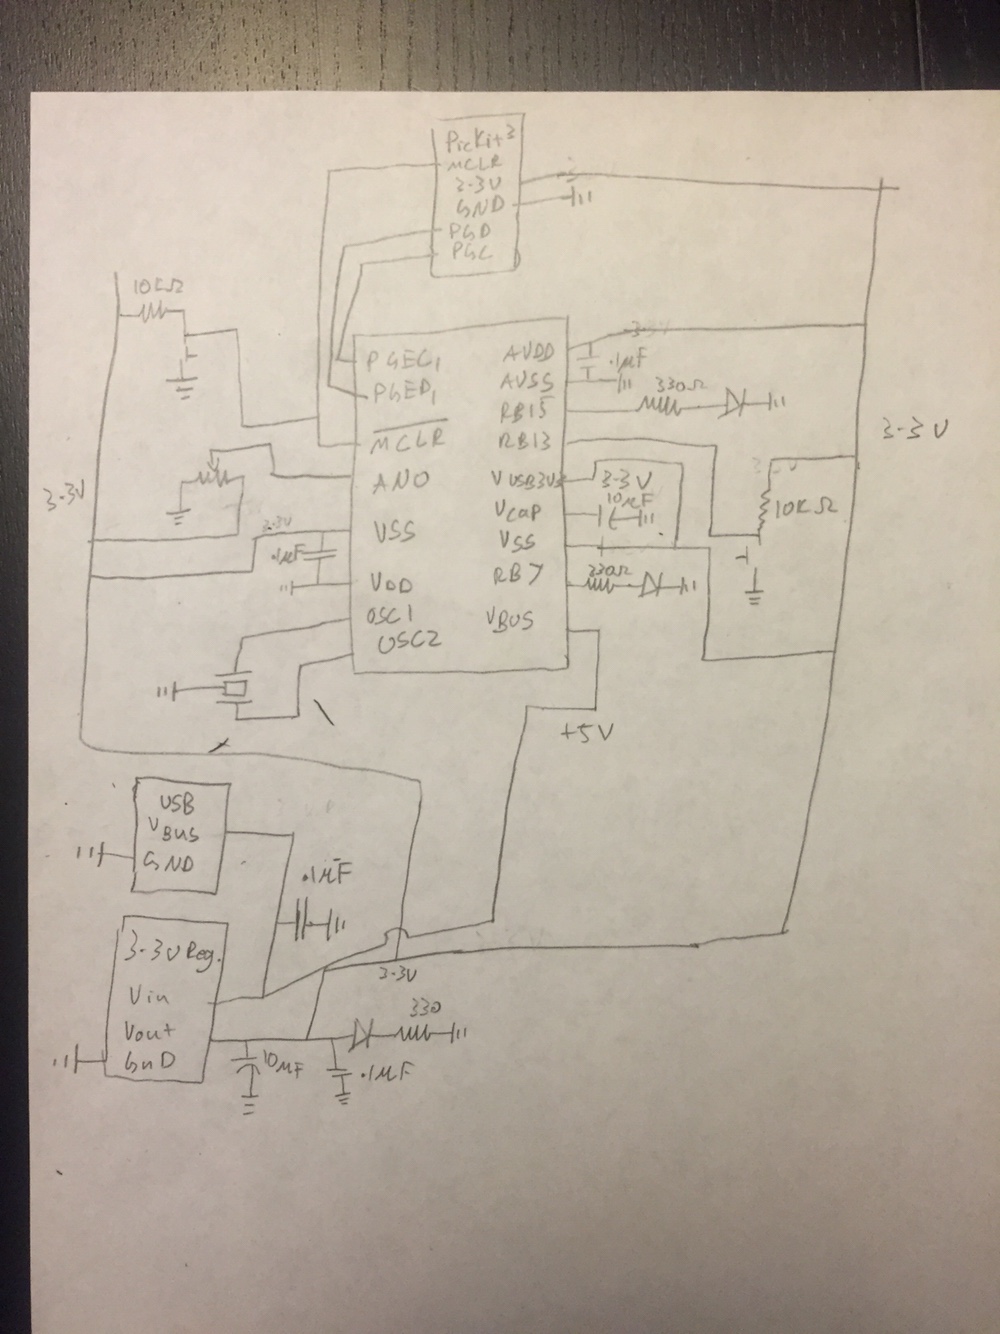 PicKit3
MCLR
3-3V
GND
PGD
PGC
10KΩ
PGEC1
PGED1
MCLR
AN0
VSS
VDD
OSC1
OSC2
AVDD
AVSS
RB15
RB13
VUSB3V3
Vcap
VSS
RB7
VBUS
.1μF
330Ω
3-3V
3-3V
10KΩ
3-3V
10μF
330Ω
3-3V
3-3V
.1μF
+5V
USB
VBUS
GND
.1μF
3-3V Reg.
Vin
Vout
GnD
3-3V
330
10μF
.1μF